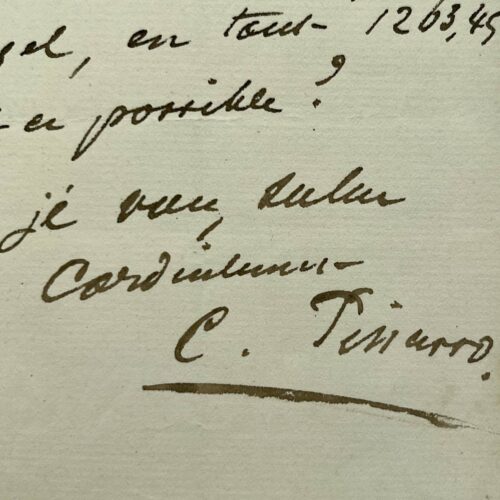 en tout 1203,45
possible?
je vous salue
Cordialement
C. Pissarro.